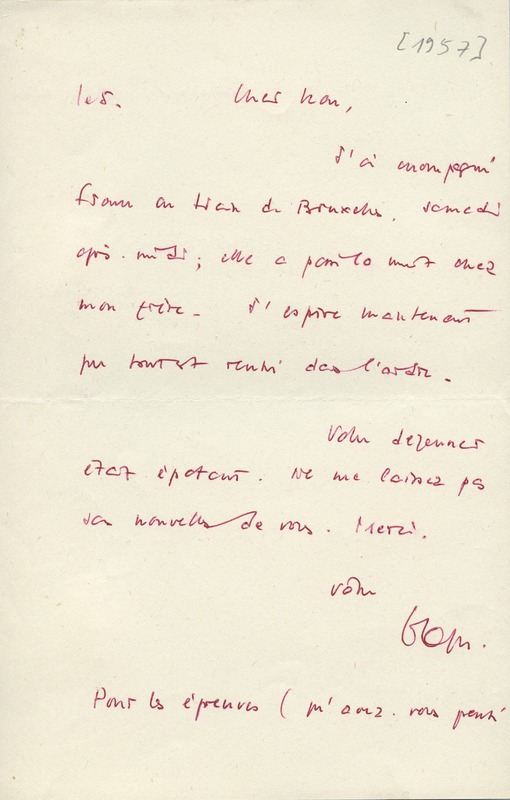 [1957]
Cher
J'ai accompagné
au train de Bruxelles, samedi
après-midi ; elle a passé la nuit chez
mon frère. J'espère maintenant
que tout est rentré dans l'ordre.
Votre déjeuner
était épatant. Ne me laissez pas
sans nouvelles de vous. Merci.
Votre
Pour les épreuves ( qu'avez-vous pensé